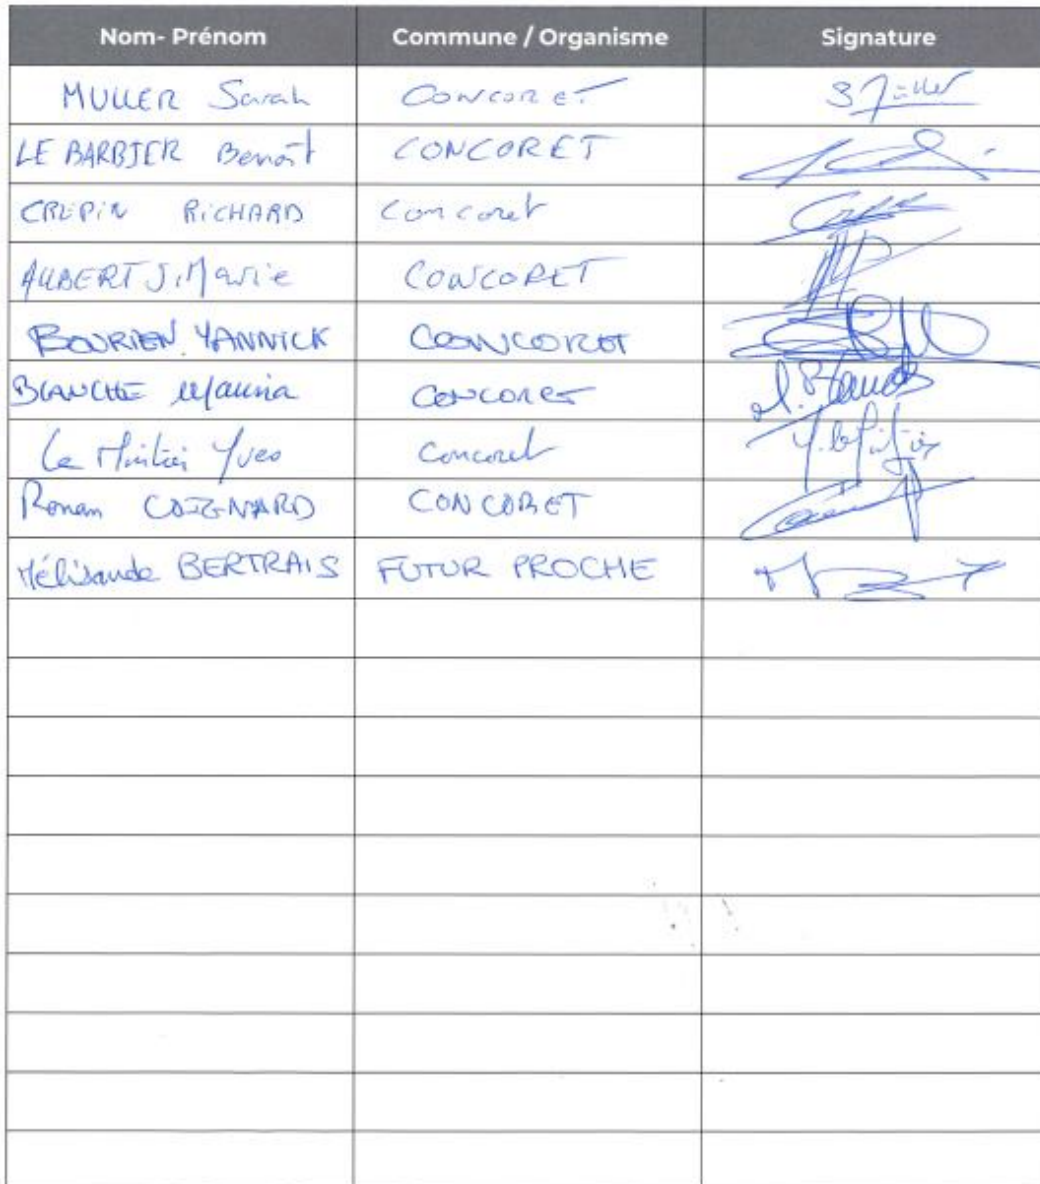 Nom- Prénom Commune / Organisme Signature
MULLER Sarah CONCORET S Muller
LE BARBIER Benoît CONCORET
CREPIN RICHARD Concoret
AUBERT J.Marie CONCORET
BOURIEN YANNICK CONCORET
BLANCHE Mauria CONCORET M. Blanche
Le Mintier Yves Concoret Y. le Mintier
Ronan COIGNARD CONCORET
Mélisande BERTRAIS FUTUR PROCHE